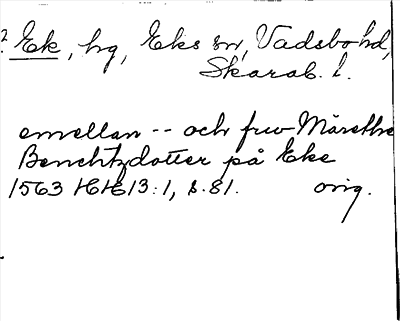 2 Ek, hg, Eks sn, Vadsbo hd,
Skarab. l.
emellan -- och fru Märethe
Benchtzdotter på Eke
1563 HH 13:1, s. 81. orig.